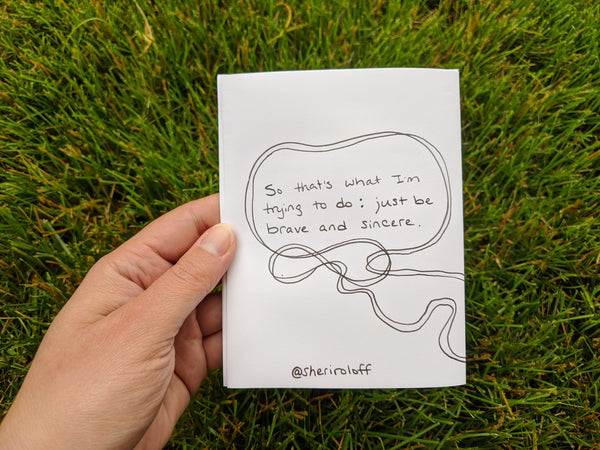 So that's what I'm
trying to do: just be
brave and sincere.
@sheriroloff